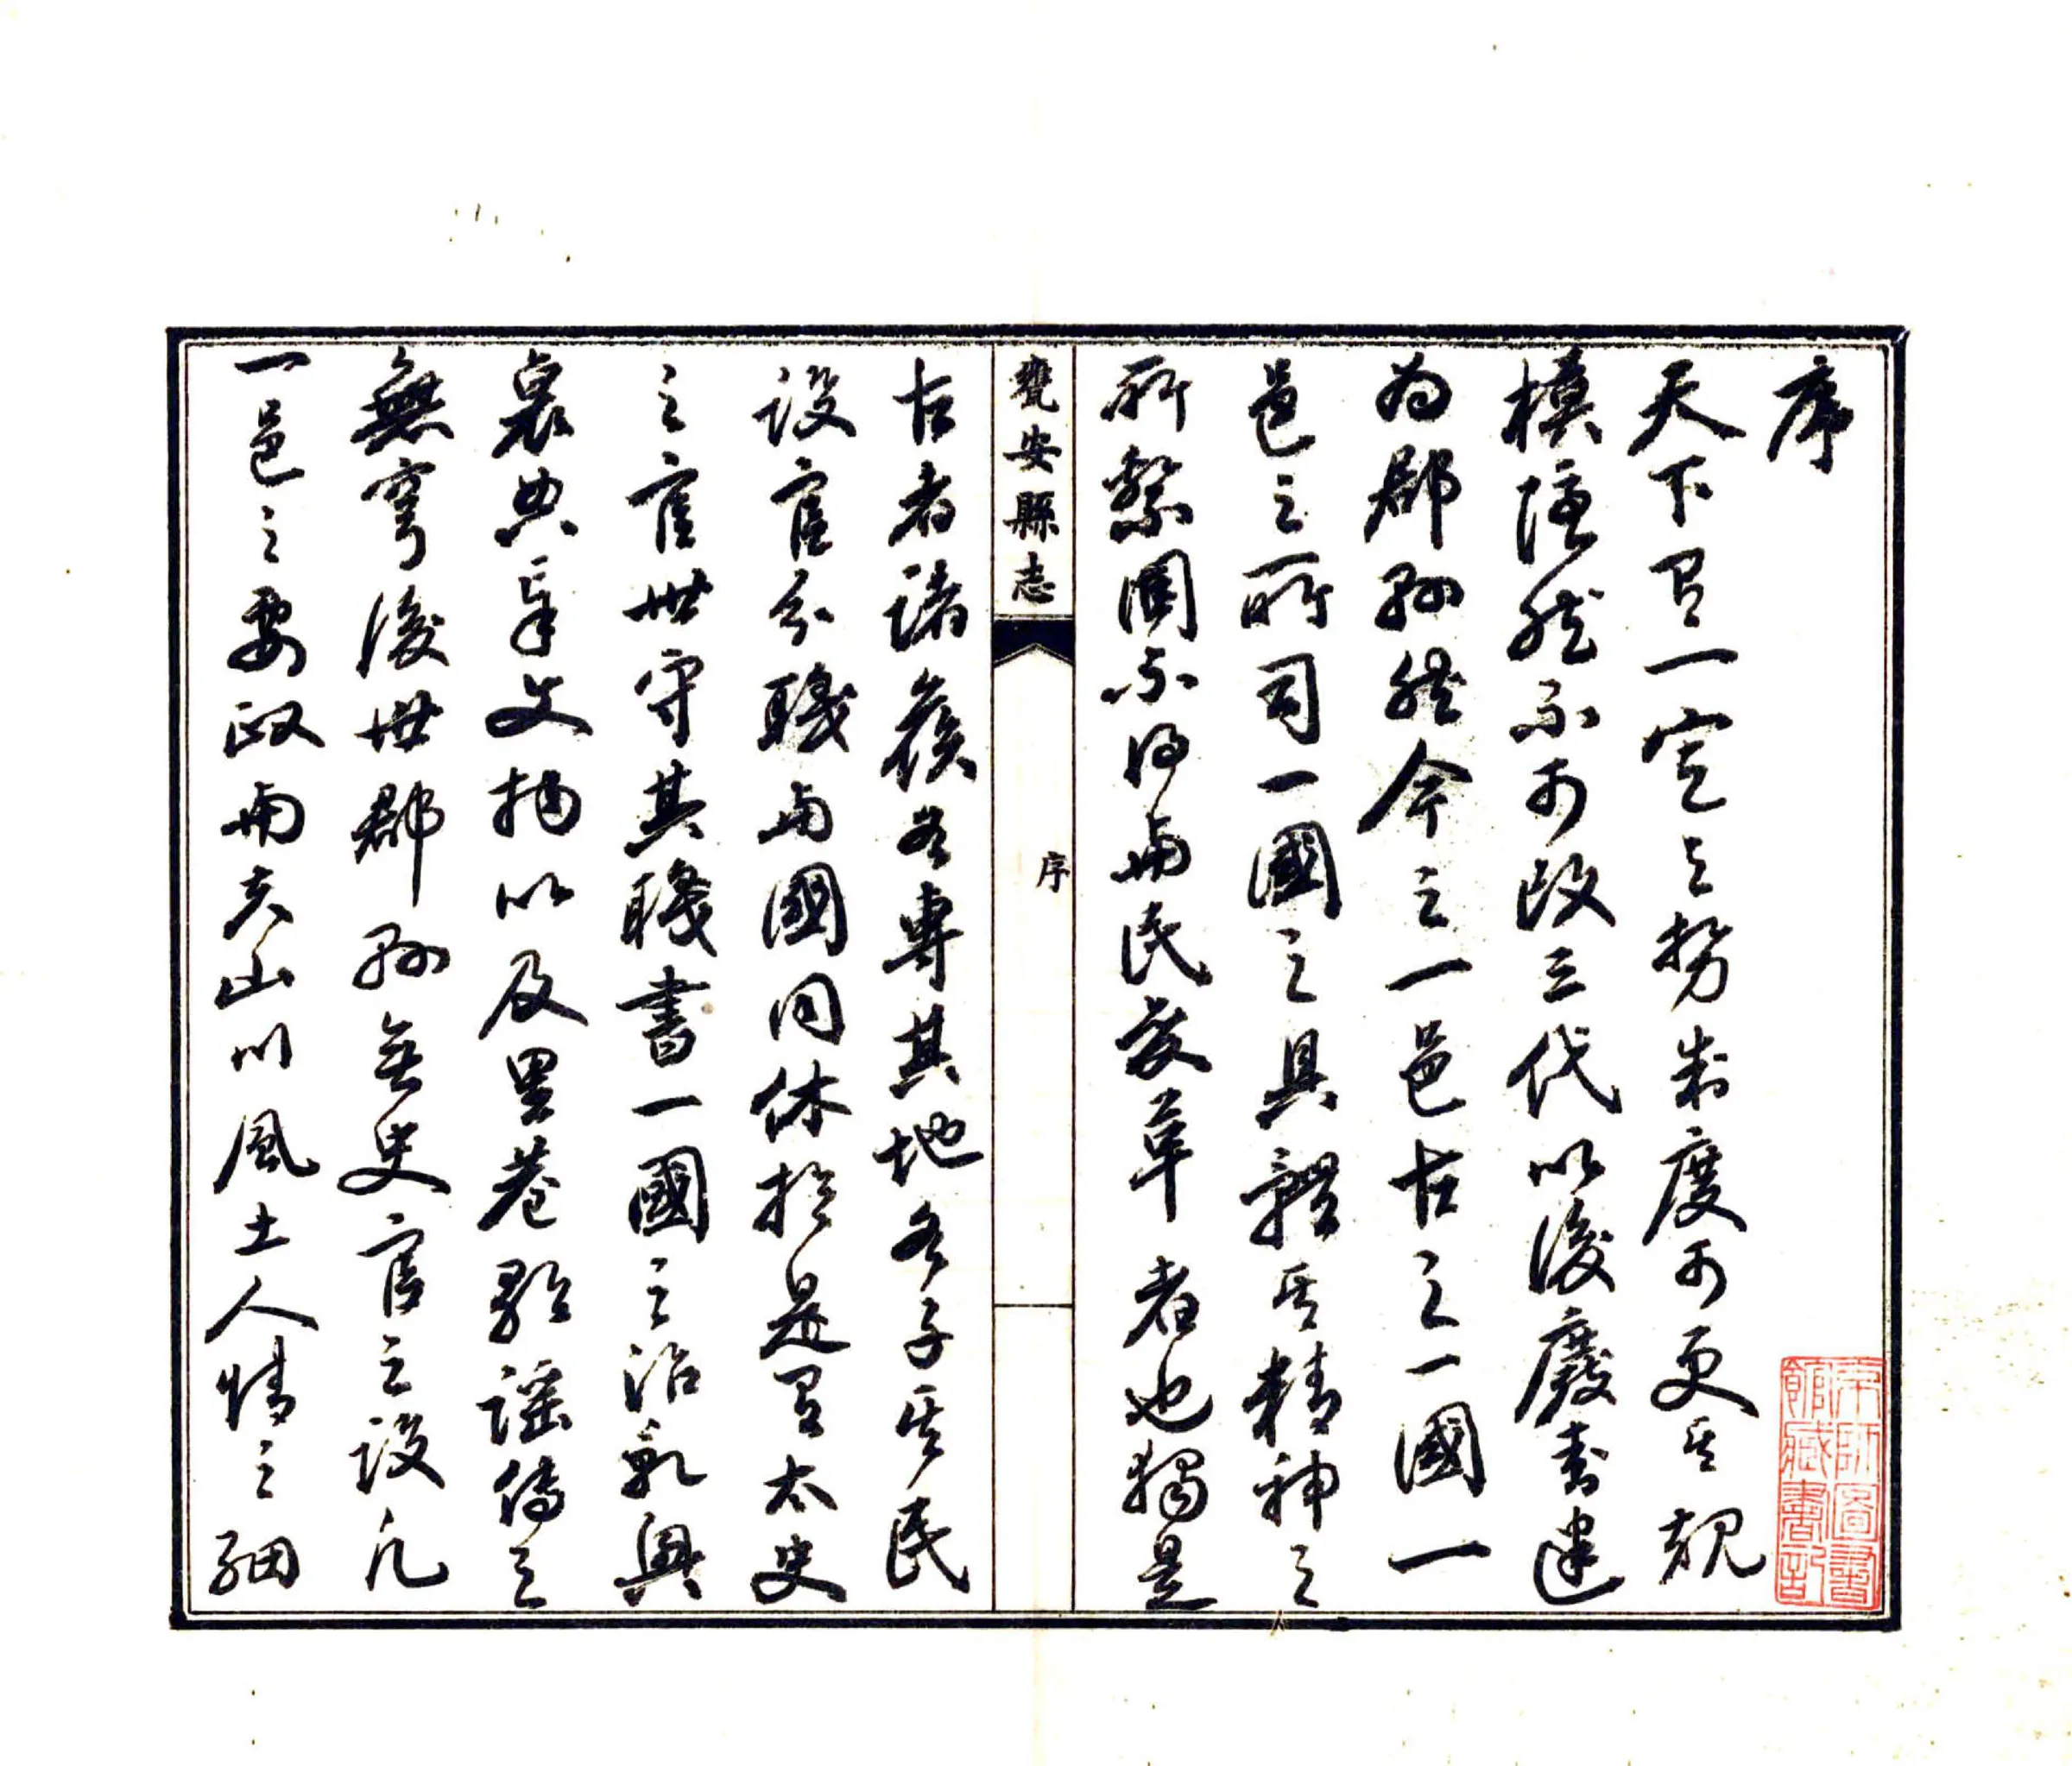 序
天下有一定之勢制度可更其規
模隱然不可改三代以後廢封建
為郡縣然今之一邑古之一國一
邑之所司一國之具體其精神之
所繫固不得與民變革者也獨是
甕安縣志
序
古者諸侯各專其地各子其民
設官分職與國同休於是有太史
之官世守其職書一國之治亂興
衰典章文物以及里巷歌謠傳之
無窮後世郡縣無史官之設凡
一邑之要政與夫山川風土人情之細
京師圖書
館藏書記